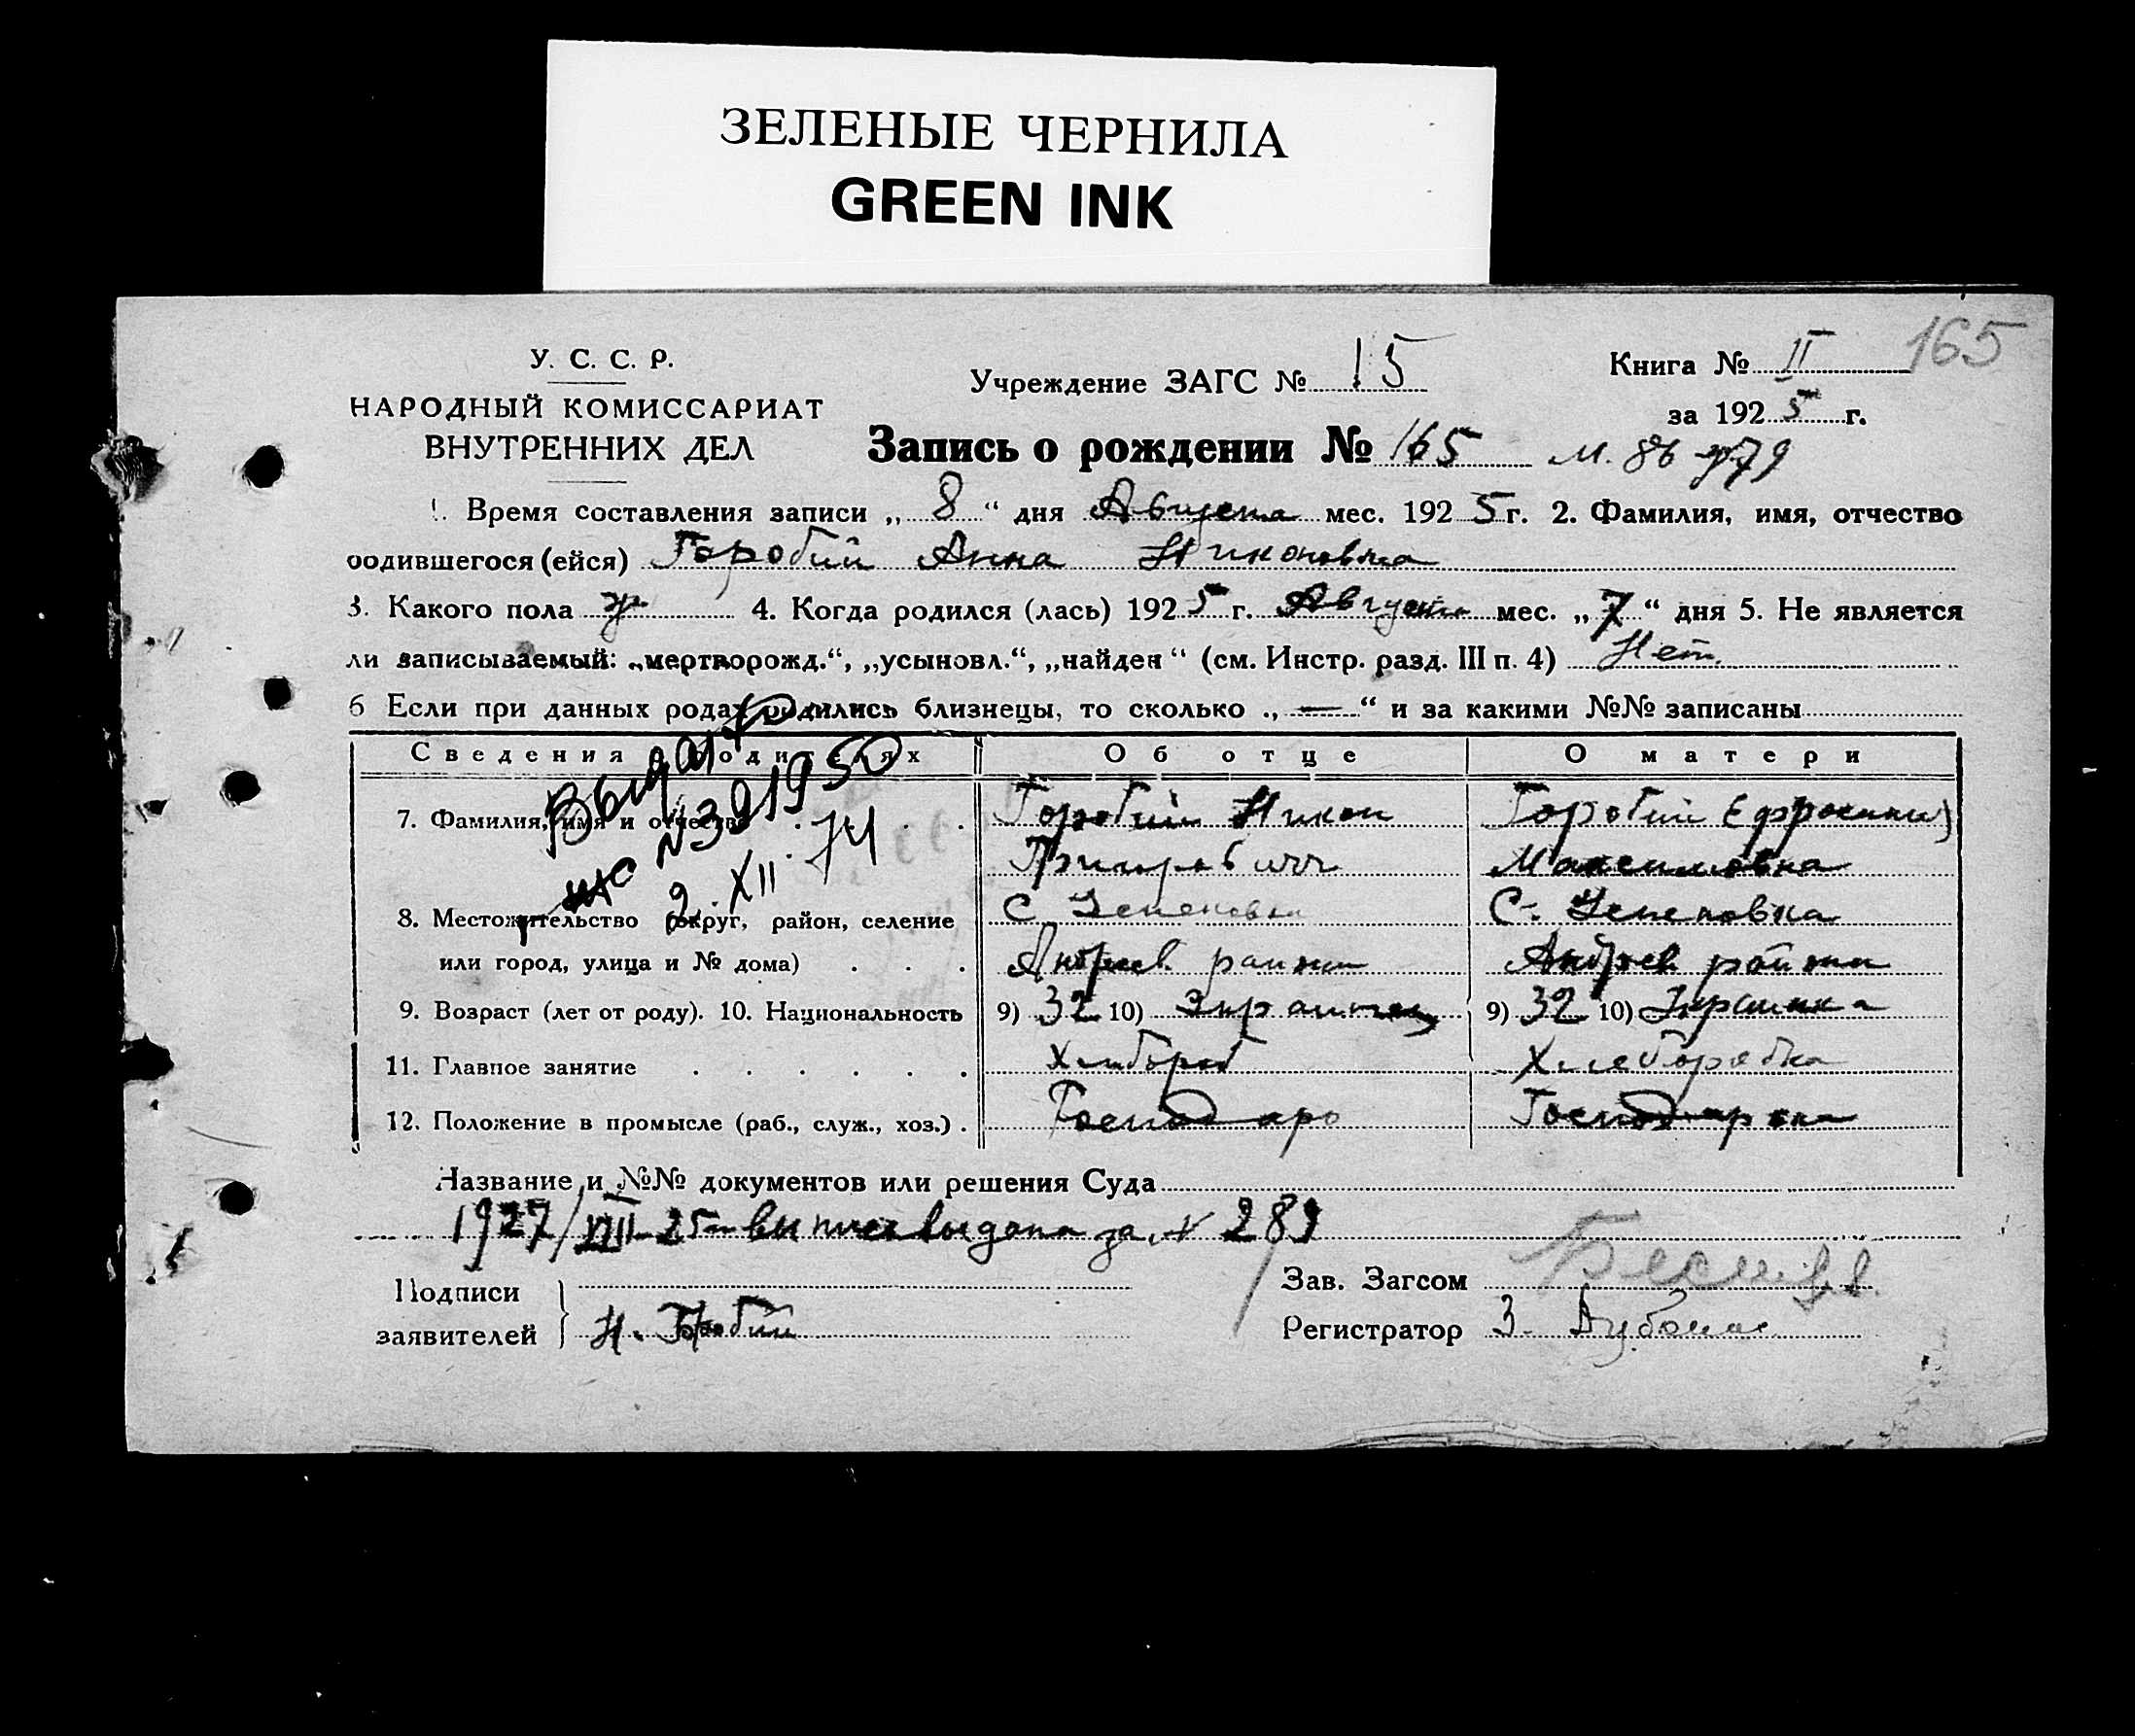 ЗЕЛЕНЫЕ ЧЕРНИЛА
GREEN INK
У. С. С. Р.
НАРОДНЫЙ КОМИССАРИАТ
ВНУТРЕННИХ ДЕЛ
Учреждение ЗАГС № 15
Книга № II 165
за 1925 г.
Запись о рождении № 165 М. 86 ж79
1. Время составления записи „ 8 “ дня Августа мес. 1925 г. 2. Фамилия, имя, отчество
родившегося (ейся) Горобий Анна Никоновна
3. Какого пола ж 4. Когда родился (лась) 1925 г. Августа мес. „ 7 “ дня 5. Не является
ли записываемый: „мертворожд.“, „усыновл.“, „найден “ (см. Инстр. разд. III п. 4) Нет.
6 Если при данных родах родились близнецы, то сколько „ — “ и за какими №№ записаны
Сведения о родителях Об отце О матери
7. Фамилия, имя и отчество Горобий Никон Горобий Ефросиния
Григоревич Максимовна
8. Местожительство (округ, район, селение С. С.
или город, улица и № дома) Андреев. района Андреев района
9. Возраст (лет от роду). 10. Национальность 9) 32 10) Украинец 9) 32 10) Украинка
11. Главное занятие Хлибороб Хлеборобка
12. Положение в промысле (раб., служ., хоз.) Господарь Господарка
Выдано
№ 391950
2. XII. 74
Название и №№ документов или решения Суда
1927/VIII-25 выпись выдана за № 289
Подписи
заявителей Н. Горобий
Зав. Загсом
Регистратор З.